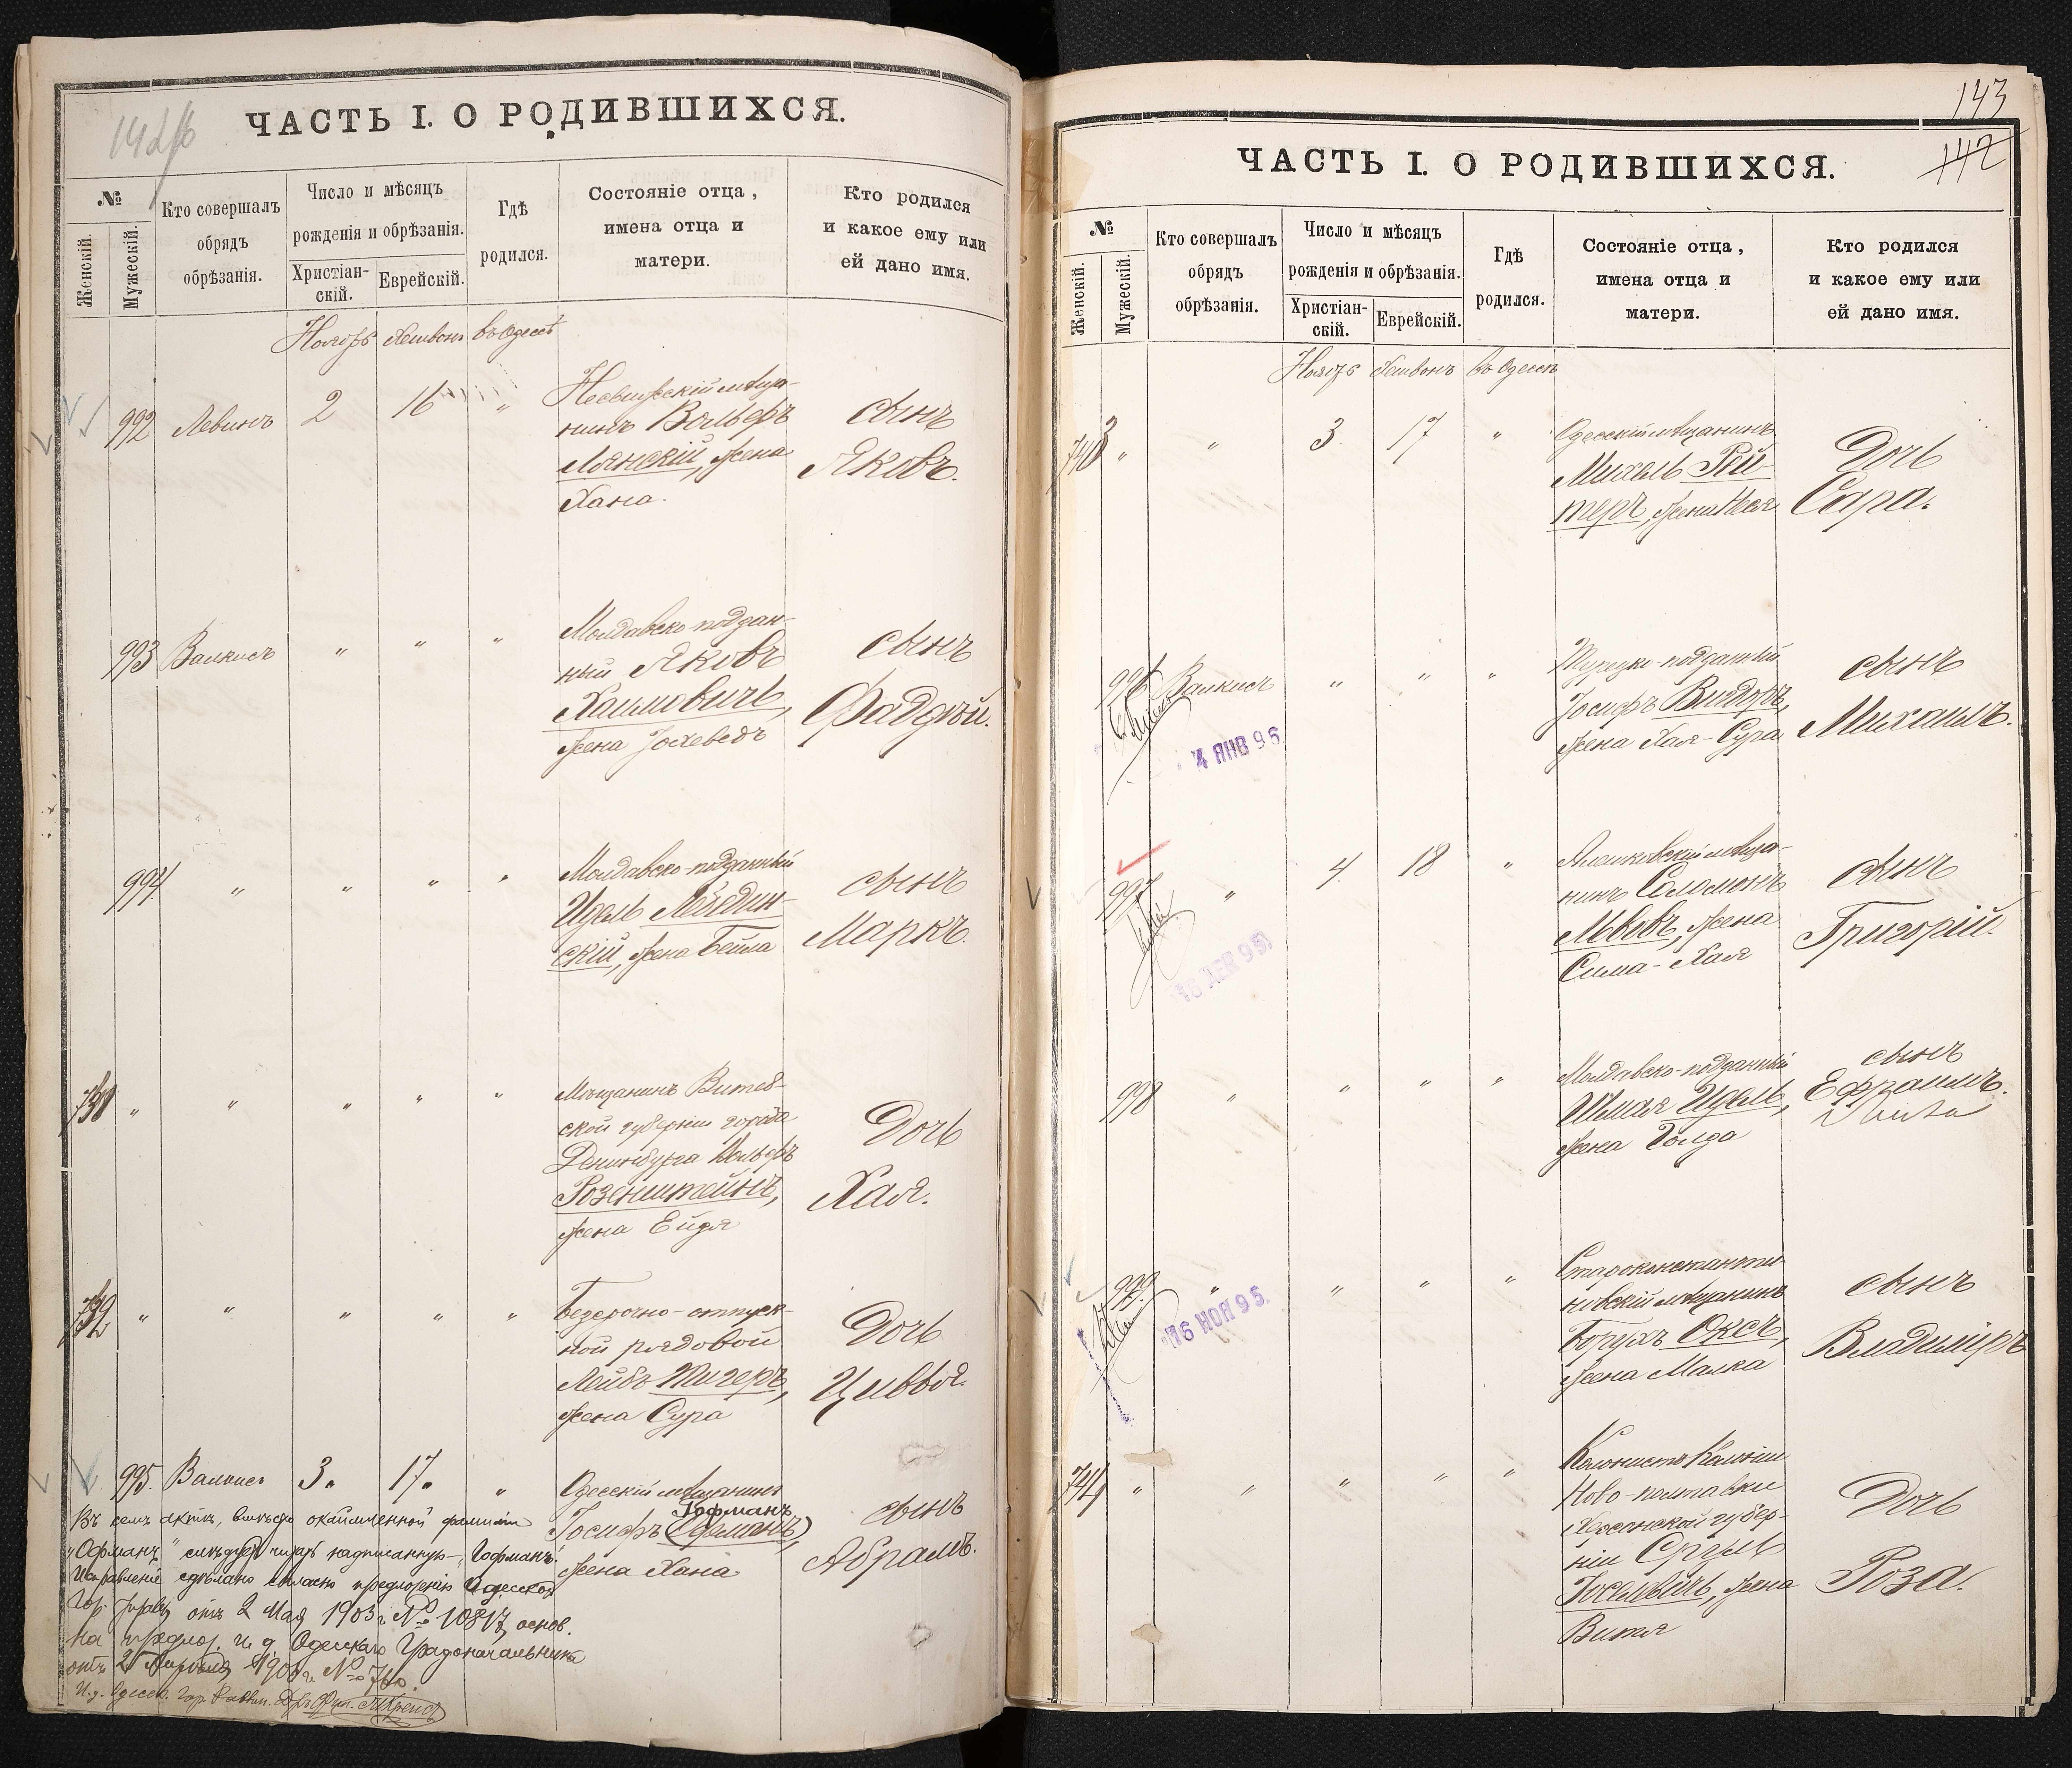 142 об
ЧАСТЬ I. О РОДИВШИХСЯ.
№
Женскій.
Мужескій.
Кто совершалъ
обрядъ
обрѣзанія.
Число и мѣсяцъ
рожденія и обрѣзанія.
Христіан-
скій.
Еврейскій.
Гдѣ
родился.
Состояніе отца,
имена отца и
матери.
Кто родился
и какое ему или
ей дано имя.
Ноябрь Хешвонъ въ Одессѣ
992 Левинъ 2 16 "
Несвижскій мѣща-
нинъ Вольфъ
Лянскій, жена
Хана.
сынъ
Яковъ.
993 Валкисъ " " "
Молдавско-поддан-
ный Яковъ
Хаимовичъ,
жена Іохеведъ
сынъ
Фаддѣй.
994 " " " "
Молдавско-подданный
Идель
скій, жена Бейла
сынъ
Маркъ.
" " " " "
Мѣщанинъ Витеб-
ской губерніи города
Денинбурга Вольфъ
Розенштейнъ,
жена Ейдя
Дочь
Хая.
" " " " "
Безсрочно-отпуск-
ной рядовой
Лейбъ Тигеръ,
жена Сура
Дочь
Цивья.
995. Валкисъ 3. 17. "
Одесскій мѣщанинъ
Гофманъ
Іосифъ (Офманъ)
жена Хана
сынъ
Абрамъ.
Въ семъ актѣ, вмѣсто окаймленной фамиліи
"Офманъ" слѣдуетъ читать надписанную "Гофманъ".
Исправленіе сдѣлано согласно предложенію Одесской
Гор. Управы отъ 2 Мая 1903 г. № 10817, основ.
на предлож. и. д. Одесскаго Градоначальника
отъ Апрѣля
И. д. Одесск. Гор. Раввин.
143
142
ЧАСТЬ I. О РОДИВШИХСЯ.
№
Женскій.
Мужескій.
Кто совершалъ
обрядъ
обрѣзанія.
Число и мѣсяцъ
рожденія и обрѣзанія.
Христіан-
скій.
Еврейскій.
Гдѣ
родился.
Состояніе отца,
имена отца и
матери.
Кто родился
и какое ему или
ей дано имя.
Ноябрь Хешвонъ въ Одессѣ
743 " " 3. 17 "
Одесскій мѣщанинъ
Михель Рей-
теръ, жена
Дочь
Сара.
996 Валкисъ " " "
Турецко-подданный
Іосифъ Видоръ,
жена Хая-Сура
сынъ
Михаилъ.
4 ЯНВ 96
997 " 4. 18 "
Алешковскій мѣща-
нинъ Соломонъ
Львовъ, жена
Сима-Хая
сынъ
Григорій.
16 ДЕК 95
998 " " " "
Молдавско-подданный
Шмая Идель,
жена Голда
сынъ
Ефраимъ.
999. " " " "
Староконстанти-
новскій мѣщанинъ
Борухъ Оксъ,
жена Малка
сынъ
Владиміръ
16 НОЯ 95.
744 " " " " "
Колонистъ Колоніи
Ново-полтавки
Херсонской губер-
ніи Сруль
Іоселевичъ, жена
Витя
Дочь
Роза.